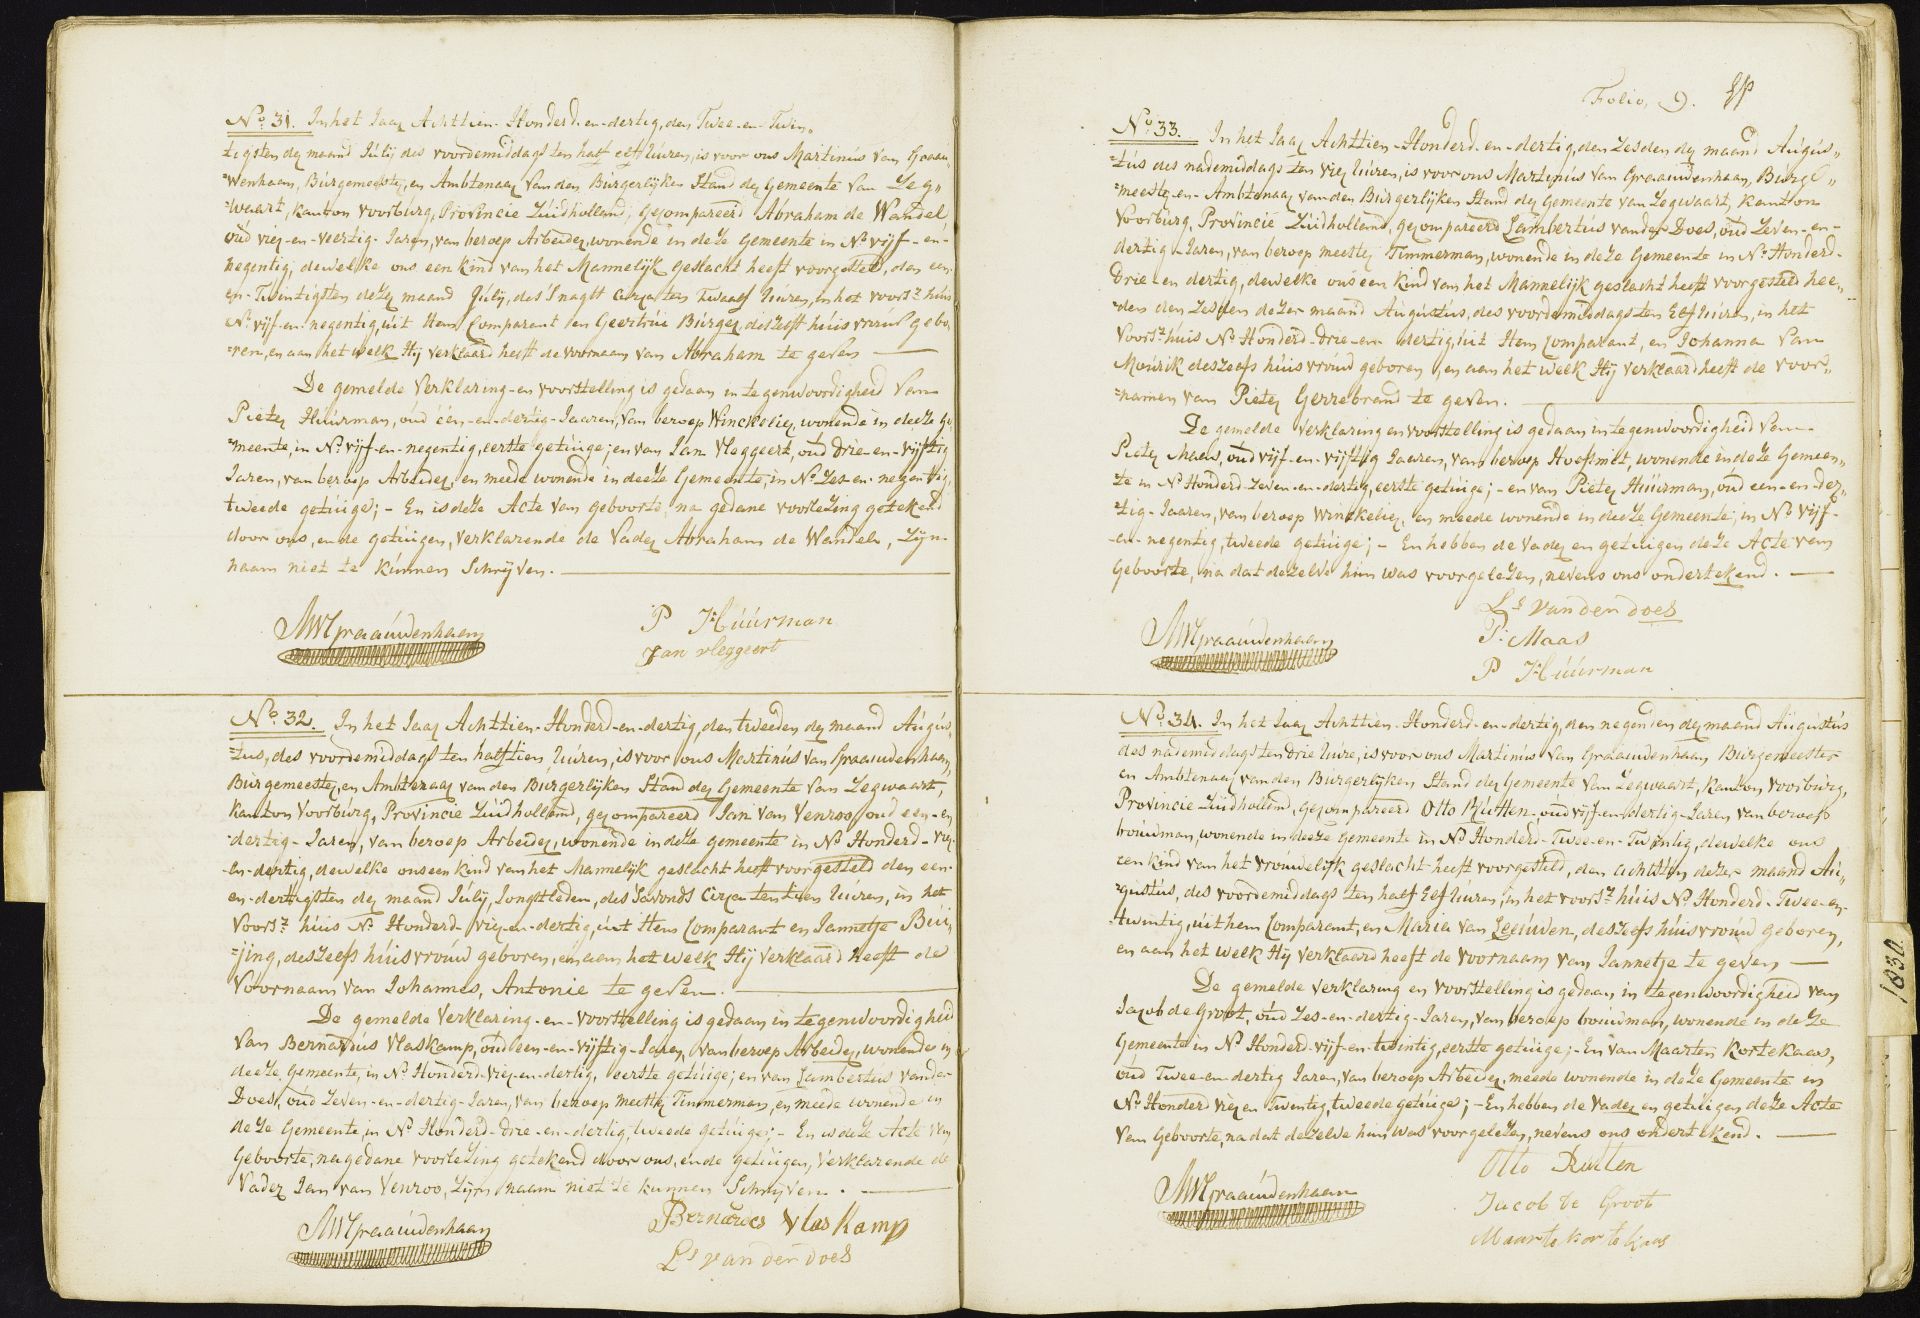 No. 31. In het Jaar Achttien-Honderd-en-dertig, den Twee-en-Twin-
tigsten der maand Julij des voordemiddags ten half elf úúren, is voor ons Martinús van Graau-
=wenhaan, Búrgemeester, en Ambtenaar van den Búrgerlijken Stand der Gemeente van Zeg„
=waart, kanton voorburg, Provincie Zúidholland; gecompareerd Abraham de Wandel
oúd vier-en-veertig-Jaren, van beroep Arbeider, wonende in deze Gemeente in No. vijf-en-
negentig, dewelke ons een kind van het Mannelijk geslacht heeft voorgesteld, den een-
en-Twintigsten dezer maand Julij, des 's nagts circa ten Twaalf úúren, in het voorsz. húis
No. vijf-en-negentig, úit Hem Comparant en Geertrúi Búrger, deszelfs húisvroúw gebo,
=ren, en aan het welk Hij verklaard heeft de voornaam van Abraham te geven
De gemelde Verklaring-en voorstelling is gedaan in tegenwoordigheid van
Pieter Húúrman, oúd één-en-dertig-Jaaren, van beroep Winckelier, wonende in deeze ge
=meente, in No. vijf-en-negentig, eerste getúige; en van Jan Vleggeert, oúd Drie-en-vijftig
Jaren, van beroep Arbeider, en meede wonende in deeze Gemeente, in No. Zes-en-negentig,
tweede getúige; - En is deze Acte van geboorte, na gedane voorlezing getekend
door ons, en de getúigen, verklarende de Vader Abraham de Wandel, Zijn
naam niet te kúnnen Schrijven.
MVGraaúwdenhaan
P Húúrman
Jan vleggeert
No. 32. In het Jaar Achttien-Honderd-en-dertig, den tweeden der maand Aúgús,
=tus, des voordemiddags ten half tien úúren, is voor ons Martinús van Graaúwdenhaan,
Búrgemeester, en Ambtenaar van den Búrgerlijken Stand der Gemeente van Zegwaart,
kanton Voorbúrg, Provincie Zúidholland, gecompareerd Jan van Venroo, oud een-en
dertig-Jaren, van beroep Arbeider, wonende in deze gemeente in No. Honderd-vier
en-dertig, dewelke ons een kind van het Mannelijk geslacht heeft voorgesteld den een
en-dertigsten der maand Júlij, Jongstleden, des 's avonds Circa ten tien úúren, in het
voorsz. húis No. Honderd-vier-en-dertig, úit Hem Comparant en Jannetje Búi,
=jing, deszelfs húisvroúw geboren, en aan het welk Hij verklaard heeft de
Voornaam van Johannes, Antonie te geven.
De gemelde Verklaring-en-voorstelling is gedaan in tegenwoordigheid
van Bernardús Vlaskamp, oúd een-en-vijftig-Jaren, van beroep Arbeider, wonende in
deeze gemeente, in No. Honderd-vier-en-dertig, eerste getúige; en van Lambertus vander
Does, oúd Zeven-en-dertig-Jaren, van beroep meester Timmerman, en meede wonende in
deze Gemeente, in No. Honderd-drie-en-dertig, tweede getúige; - En is deze Acte van
Geboorte, na gedane voorlezing getekend door ons, en de getúigen, verklarende de
Vader Jan van Venroo, Zijn naam niet te kunnen Schrijven.
MVGraaúwdenhaan
Bernardus Vlaskamp
Ls van der does
Folio, 9.
No. 33. In het Jaar Achttien-Honderd-en-dertig, den Zesden der maand Aúgus„
=tús des nademiddags ten vier úúren, is voor ons Martinús van Graaúwdenhaan, Búrge„
=meester-en-Ambtenaar van den Búrgerlijken Stand der Gemeente van Zegwaart, kanton
Voorbúrg, Provincie Zúidholland, gecompareerd Lambertús vander Does, oúd Zeven-en-
dertig-Jaren, van beroep meester Timmerman, wonende in deze Gemeente in No. Honderd-
Drie-en dertig, dewelke ons een kind van het Mannelijk geslacht heeft voorgesteld hee„
den den Zesden dezer maand Aúgústús, des voordemiddags ten Elf úúren, in het
voorsz. húis No. Honderd-drie-en-dertig, úit Hem Comparant, en Johanna van
Moúrik deszelfs húisvroúw geboren, en aan het welk Hij verklaard heeft de voor„
=namen van Pieter Gerrebrand te geven.
De gemelde verklaring en voorstelling is gedaan in tegenwoordigheid van
Pieter Maas, oúd vijf-en-vijftig Jaaren, van beroep Hoefsmit, wonende in deze Gemeen„
=te in No. Honderd-zeven-en-dertig, eerste getúige; - en van Pieter Húúrman, oúd een-en-der„
=tig-Jaaren, van beroep Winckelier, en meede wonende in deeze Gemeente, in No. vijf-
-en-negentig, tweede getúige; - En hebben de vader en getúigen deze Acte van
Geboorte, na dat dezelve hún was voorgelezen, nevens ons ondertekend.
MVGraaúwdenhaan
Ls van den does
P. Maas
P Húúrman
No. 34. In het Jaar Achttien-Honderd-en-dertig, den negenden der maand Aúgústús
des nademiddags ten drie úúre, is voor ons Martinús van Graaúwdenhaan Búrgemeester
en Ambtenaar van den Búrgerlijken Stand der Gemeente van Zegwaart, kanton Voorbúrg,
Provincie Zúidholland, gecompareerd Otto Rutten oud vijf-en-dertig-Jaren van beroep
boúwman, wonende in deeze Gemeente in No. Honderd-Twee-en-Twintig, dewelke ons
een kind van het vrouwelijk geslacht heeft voorgesteld, den achtsten dezer maand Aú„
=gústús, des voordemiddags ten half Elf úúren, in het voorsz. húis No. Honderd-Twee-en-
twintig, úit hem Comparant, en Maria van Leeúwen, deszelfs húisvroúw geboren,
en aan het welk Hij verklaard heeft de voornaam van Jannetje te geven
De gemelde verklaring en voorstelling is gedaan in tegenwoordigheid van
Jacob de Groot, oúd Zes-en-dertig-Jaren, van beroep boúwman, wonende in deze
Gemeente in No. Honderd-vijf-en-twintig, eerste getúige; - En van Maarten kortekaas,
oúd Twee-en-dertig Jaren, van beroep Arbeider, meede wonende in deze Gemeente in
No. Honderd vier en Twintig, tweede getúige; - En hebben de vader en getúigen deze Acte
van Geboorte, na dat dezelve hún was voorgelezen, nevens ons ondertekend.
MVGraaúwdenhaan
Otto Rutten
Jacob de Groot
Maarte kortekaas
1830.